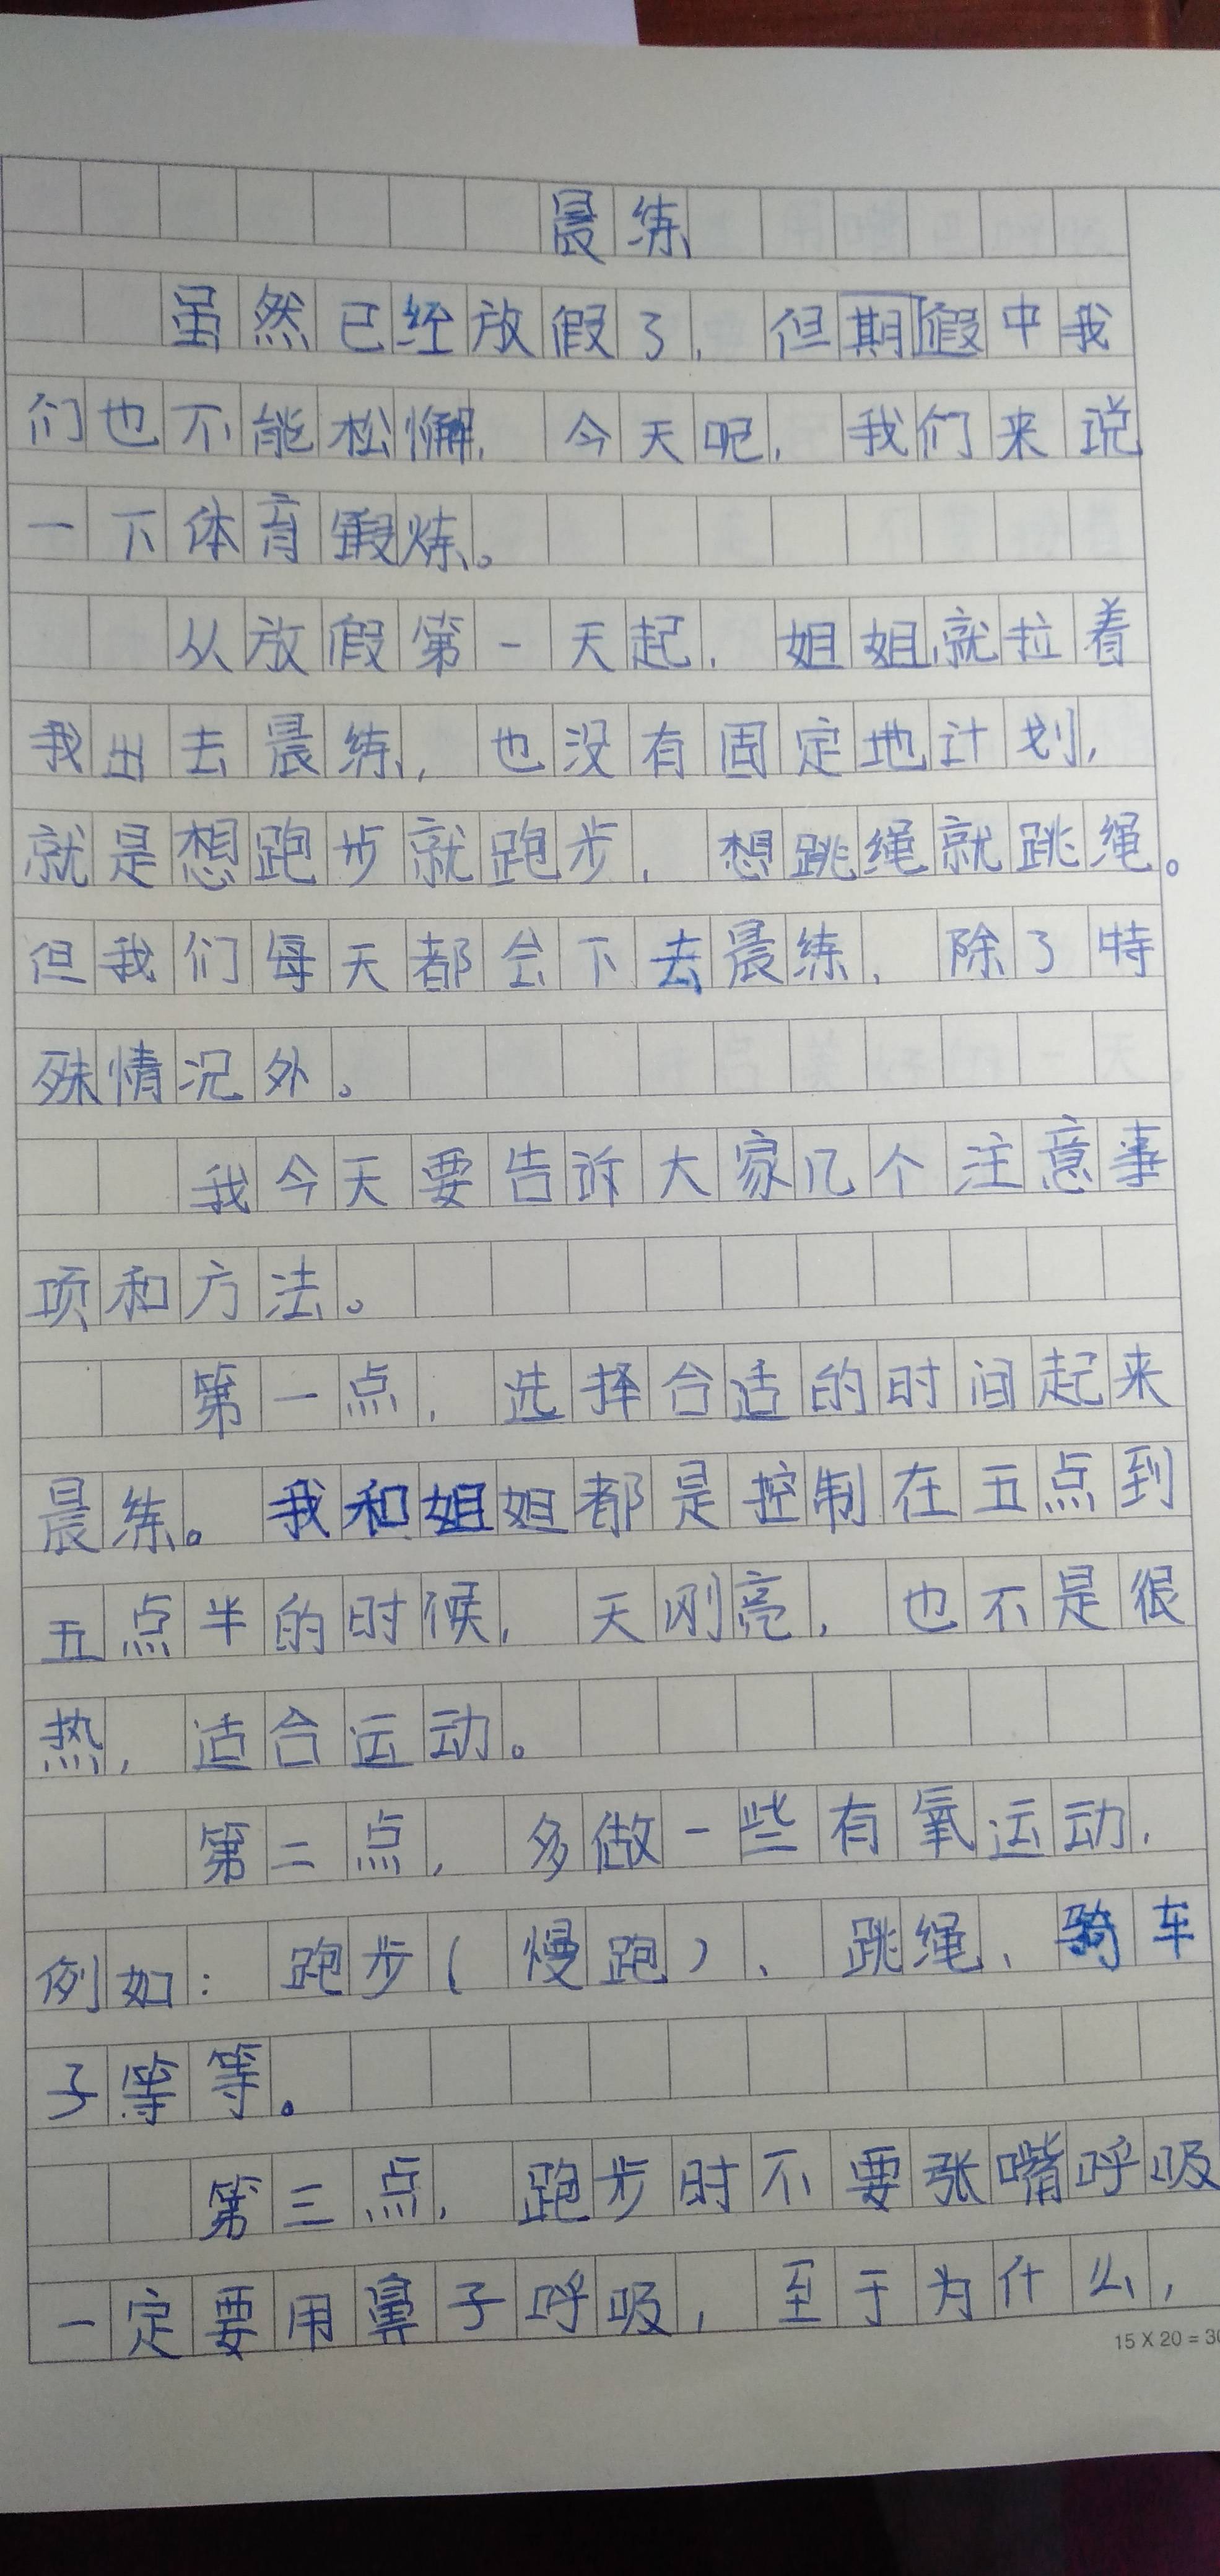 晨练
虽然已经放假了，但期假中我
们也不能松懈，今天呢，我们来说
一下体育锻炼。
从放假第一天起，姐姐就拉着
我出去晨练，也没有固定地计划，
就是想跑步就跑步，想跳绳就跳绳。
但我们每天都会下去晨练，除了特
殊情况外。
我今天要告诉大家几个注意事
项和方法。
第一点，选择合适的时间起来
晨练。我和姐姐都是控制在五点到
五点半的时候，天刚亮，也不是很
热，适合运动。
第二点，多做一些有氧运动，
例如：跑步（慢跑）、跳绳、骑车
子等等。
第三点，跑步时不要张嘴呼吸
一定要用鼻子呼吸，至于为什么，
15 X 20 = 30